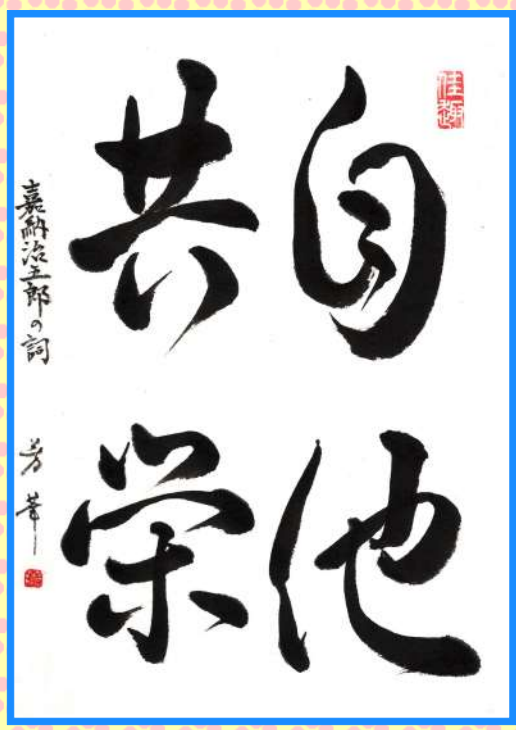 自他
共栄
嘉納治五郎の詞
芳華
佳趣